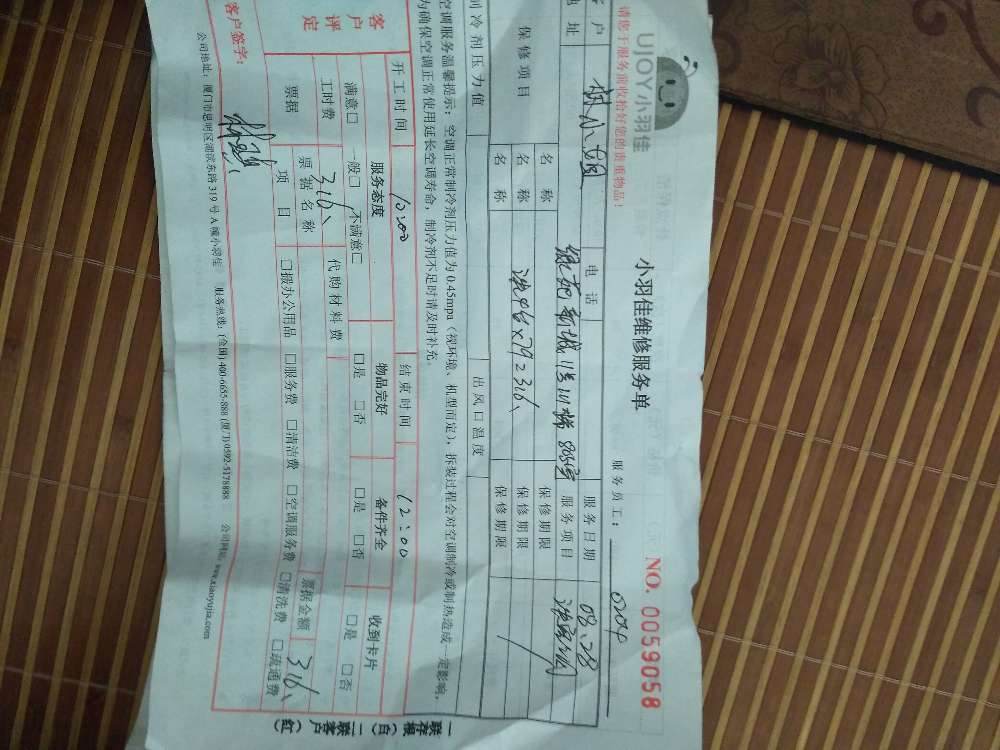 UJOY小羽佳
请您于服务前收拾好您的贵重物品!
小羽佳维修服务单
NO. 0059058
服务员工:
客户 林小姐 电话 服务日期 08.28
地址 绿苑新城11号川梯803室 服务项目
保修项目 名称 保修期限
名称 洗4台×79 316 保修期限
名称 保修期限
制冷剂压力值 出风口温度
空调服务温馨提示:空调正常制冷剂压力值为0.45mpa(视环境、机型而定),拆装过程会对空调制冷或制热造成一定影响,
为确保空调正常使用延长空调寿命,制冷剂不足时请及时补充。
开工时间 10:00 结束时间 12:00
客户评定 服务态度 物品完好 备件齐全 收到卡片
满意□ 一般□ 不满意□ □是 □否 □是 □否 □是 □否
工时费 316 代购材料费
票据 票据名称 票据金额 316
项目 □拨办公用品 □服务费 □清洁费 □空调服务费 □清洗费 □疏通费
客户签字:
公司地址:厦门市思明区湖滨东路319号A幢小羽佳 服务热线:(全国)400-6655-888 (厦门)0592-5178888 公司网站:www.xiaoyujia.com
一联存根(白) 二联客户(红)